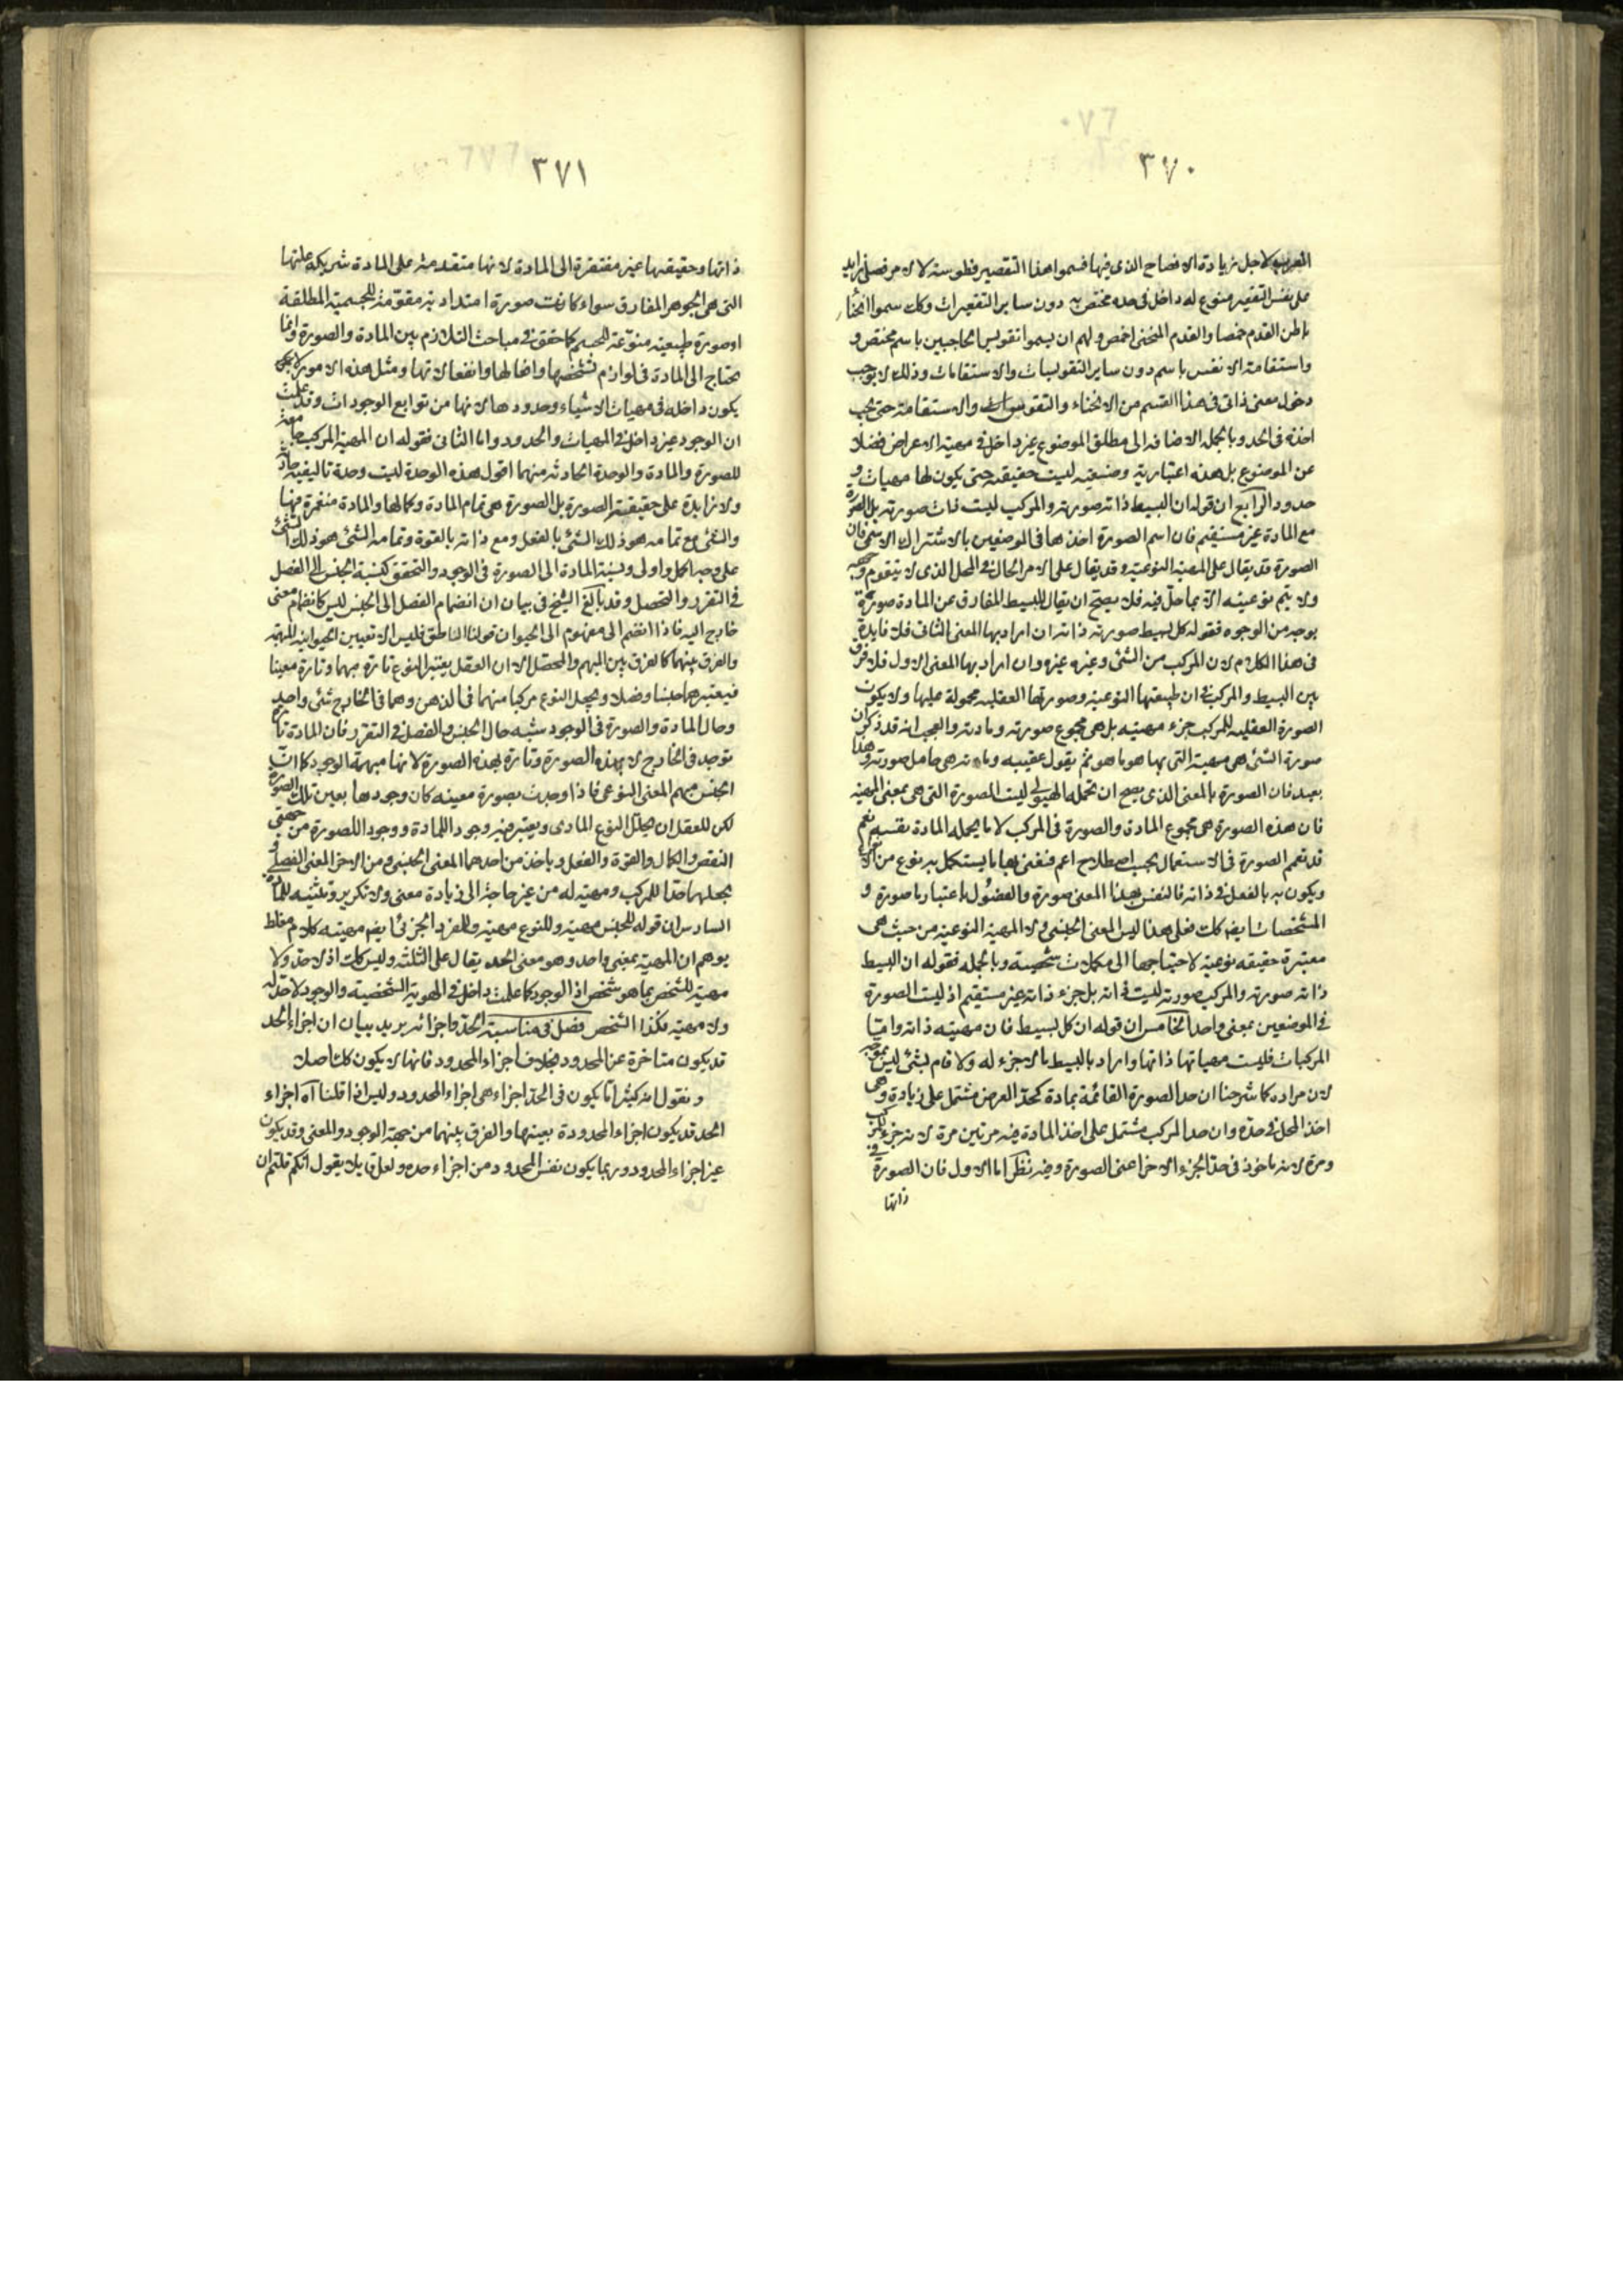 ٣٧٠
العرب ولاجل زيادة الافصاح الذى فيها فسموا هذا التقصير فطوسة لا لامر فصلى زايد
على نفس التقعير منوع له داخل فى حده مختص به دون ساير التقعيرات وكك سموا انحناء
باطن القدم خمصا والقدم المنحنى اخمص ولهم ان يسموا تقويس الحاجبين باسم مختص و
واستقامة الانفس باسم دون ساير التقويسات والاستقامات وذلك لا يوجب
دخول معنى ذاتى فى هذا القسم من الانحناء والتقويسات والاستقامة حتى يجب
اخذه فى الحد وبالجملة الاضافة الى مطلق الموضوع غير داخل فى مهية الاعراض فضلا
عن الموضوع بل هذه اعتبارية وصنعية ليست حقيقية حتى يكون لها مهيات و
حدود الرابع ان قوله ان البسيط ذاته صورته والمركب ليست ذات صورته بل الصورة
مع المادة غير مستقيم فان اسم الصورة اخذها فى الموضعين بالاشتراك الاسمى فان
الصورة قد يقال على المهية النوعية وقد يقال على الامر الحال فى المحل الذى لا يتقوم وجوده
ولا يتم نوعيته الا بما حل فيه فلا يصح ان يقال للبسيط المفارق عن المادة صورة
بوجه من الوجوه فقوله كل بسيط صورته ذاته ان اراد بها المعنى الثانى فلا فايدة
فى هذا الكلام لان المركب من الشئ وغيره غيره وان اراد بها المعنى الاول فلا فرق
بين البسيط والمركب فى ان طبيعتها النوعية وصورتها العقلية محمولة عليها ولا يكون
الصورة العقلية للمركب جزء مهيته بل هى مجموع صورته ومادته والعجب انه قد ذكر ان
صورة الشئ هى مهيته التى بها هو ما هو ثم يقول عقيبه ومادته هى حامل صورته وهذا
بعيد فان الصورة بالمعنى الذى يصح ان تحمله الهيولى ليست الصورة التى هى بمعنى المهية
فان هذه الصورة هى مجموع المادة والصورة فى المركب لا ما يحمله المادة بقسيم نعم
قد تعم الصورة فى الاستعمال بحسب اصطلاح اعم فنعنى بها ما يستكمل به نوع من الانواع
ويكون به بالفعل فى ذاته فالنفس بهذا المعنى صورة والفصول باعتبار ما صورة و
المشخصات ايضا كك فعلى هذا ليس المعنى الجنسى ولا المهية النوعية من حيث هى
معتبرة حقيقة نوعية لاحتياجها الى مكملات شخصية وبالجملة فقوله ان البسيط
ذاته صورته والمركب صورته ليست ذاته بل جزء ذاته غير مستقيم اذ ليست الصورة
فى الموضعين بمعنى واحد الخامس ان قوله ان كل بسيط فان مهيته ذاته واما
المركبات فليست مهياتها ذاتها واراد بالبسيط ما لا جزء له ولا قام بشئ ليس بموجه
لان مراده كما شرحنا ان حد الصورة القائمة بمادة كحد العرض مشتمل على زيادة وهى
اخذ المحل فى حده وان حد المركب مشتمل على اخذ المادة فيه مرتين مرة لانه جزء للمركب
ومرة لانه ماخوذ فى حد الجزء الاخر اعنى الصورة وفيه نظر اما الاول فان الصورة فى
ذاتها
٣٧١
ذاتها وحقيقتها غير مفتقرة الى المادة لانها متقدمة على المادة شريكة علتها
التى هى الجوهر المفارق سواء كانت صورة امتدادية مقومة للجسمية المطلقة
او صورة طبيعية منوعة للجسم كما حقق فى مباحث التلازم بين المادة والصورة وانما
تحتاج الى المادة فى لوازم تشخصها وافعالها وانفعالاتها ومثل هذه الامور لا يجب
يكون داخلة فى مهيات الاشياء وحدودها لانها من توابع الوجودات وقد علمت
ان الوجود غير داخل فى المهيات والحدود واما الثانى فقوله ان المهية المركب جامعة
للصورة والمادة والوحدة الحادثة منهما اقول هذه الوحدة ليست وحدة تاليفية حادثة
ولا زايدة على حقيقية الصورة بل الصورة هى تمام المادة وكمالها والمادة منغمرة فيها
والشئ مع تمامه هو ذلك الشئ بالفعل ومع ذاته بالقوة وتمامه الشئ هو ذلك الشئ
على وجه اكمل واولى ونسبة المادة الى الصورة فى الوجود والتحقق كنسبة الجنس الى الفصل
فى التقرر والتحصل وقد بالغ الشيخ فى بيان ان انضمام الفصل الى الجنس ليس كانضمام معنى
خارج اليه فاذا انضم الى مفهوم الى الحيوان قولنا الناطق فليس الا تعيين الحيوانية المبهمة
والفرق بينهما كالفرق بين المبهم والمحصل الا ان العقل يعتبر النوع تارة مبهما وتارة معينا
فيعتبرهما جنسا وفصلا ويجعل النوع مركبا منهما فى الذهن وهما فى الخارج شئ واحد
وحال المادة والصورة فى الوجود شبه حال الجنس والفصل فى التقرر فان المادة تارة
توجد فى الخارج لا بهذه الصورة وتارة بهذه الصورة لانها مبهمة الوجود كما ان
الجنس مبهم المعنى النوعى فاذا وجدت بصورة معينه كان وجودها بعين تلك الصورة
لكن للعقل ان يحلل النوع المادى ويعتبر فيه وجود المادة ووجود الصورة من جهتى
النقص والكمال والقوة والفعل وياخذ من احدهما المعنى الجنسى ومن الاخر المعنى الفصلى و
يجعلهما حدا للمركب ومهية له من غير حاجة الى زيادة معنى ولا تكرير وتثنية للمادة
السادس ان قوله للجنس مهية وللنوع مهية وللفرد الجزئى ايضا مهيته كلام مغلط
يوهم ان المهية بمعنى واحد وهو معنى الحد يقال على الثلثة وليس كك اذ لا حد ولا
مهية للشخص بما هو شخص اذ الوجود كما علمت داخل فى الهوية الشخصية والوجود لا حد له
ولا مهية فكذا الشخص فصل فى مناسبة الحد واجزائه يريد بيان ان اجزاء الحد
قد يكون متاخرة عن المحدود بخلاف اجزاء المحدود فانها لا يكون كك اصلا
ونقول انه كثيرا ما يكون فى الحد اجزاء هى اجزاء المحدود وليس اذا قلنا اه اجزاء
الحد قد يكون اجزاء المحدودة بعينها والفرق بينهما من جهة الوجود والمعنى وقد يكون
غير اجزاء المحدود وربما يكون نفس المحدود من اجزاء حده ولعل قايلا يقول انكم قلتم ان